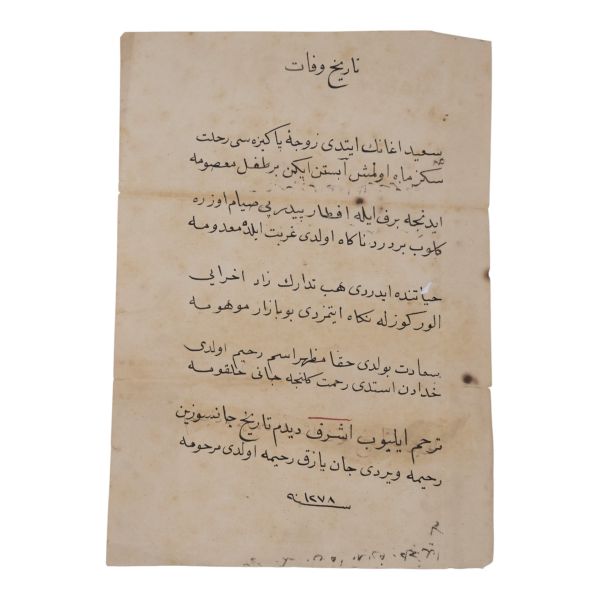 تاریخ وفات
سعید اغانك ایتدی زوجهٔ پاکیزه سی رحلت
سکز ماه اولمش آبستن ایکن بر طفل معصومه
ایدنجه برف ایله افطار پیدرپی صیام اوزره
کلوب بر درد ناکاه اولدی غربت ایلده معدومه
حیاتنده ایدردی هب تدارك زاد اخرایی
الور کوزله نکاه ایتمزدی بو بازار موهومه
سعادت بولدی حقا مظهر اسم رحیم اولدی
خدادن استدی رحمت کلنجه جانی حلقومه
ترحم ایلیوب اشرف دیدم تاریخ جانسوزین
رحیمه ویردی جان یازق رحیمه اولدی مرحومه
سنه ١٢٧٨